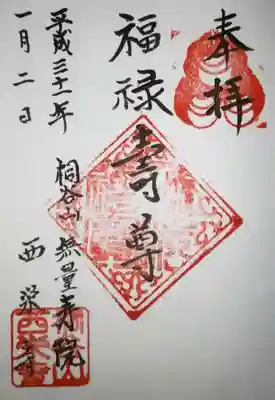 奉拝
福禄
壽尊
平成三十一年
一月二日
桐谷山無量寿院
西栄寺